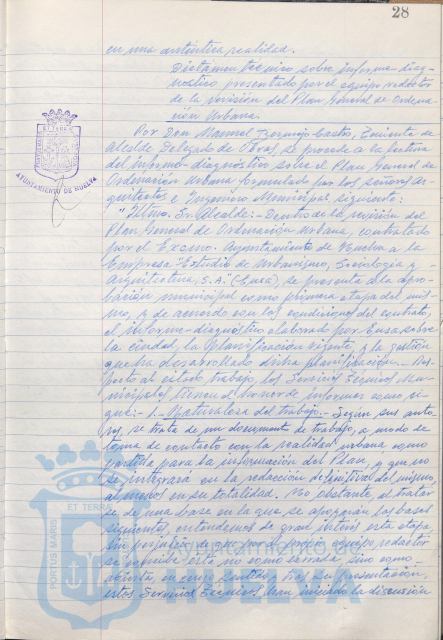 28
en una auténtica realidad.
Dictamen técnico sobre informe-diag-
nóstico presentado por el equipo redactor
de la revisión del Plan General de Ordena-
ción Urbana.
Por Don Manuel Castro, Teniente de
Alcalde Delegado de Obras, se procede a la lectura
del informe-diagnóstico sobre el Plan General de
Ordenación Urbana formulado por los señores Ar-
quitectos e Ingeniero Municipal, siguiente:
"Iltmo. Sr. Alcalde:- Dentro de la revisión del
Plan General de Ordenación Urbana, contratado
por el Excmo. Ayuntamiento de Huelva a la
Empresa "Estudio de Urbanismo, Sociología y
Arquitectura, S.A." (Eusa), se presenta a la apro-
bación municipal como primera etapa del mis-
mo, y de acuerdo con las condiciones del contrato,
el informe-diagnóstico elaborado por Eusa sobre
la ciudad, la Planificación vigente y la gestión
que ha desarrollado dicha planificación.- Res-
pecto al citado trabajo, los Servicios Técnicos Mu-
nicipales tienen el honor de informar como si-
gue:- 1.- Naturaleza del trabajo.- Según sus auto-
res se trata de un documento de trabajo, a modo de
toma de contacto con la realidad urbana como
partida para la información del Plan, y que no
se integrará en la redacción definitiva del mismo,
al menos en su totalidad. No obstante, el tratar-
se de una base en la que se apoyarán las bases
siguientes, entendemos de gran interés esta etapa,
sin perjuicio de que por el propio equipo redactor
se conciba ésta no como cerrada, sino como
abierta, en cuyo sentido, tras su presentación,
estos Servicios Técnicos han iniciado la discusión
ET TERRAE
PORTUS MARIS
AYUNTAMIENTO DE HUELVA
ET TERRA
PORTUS MARIS
Ayuntamiento de
HUELVA